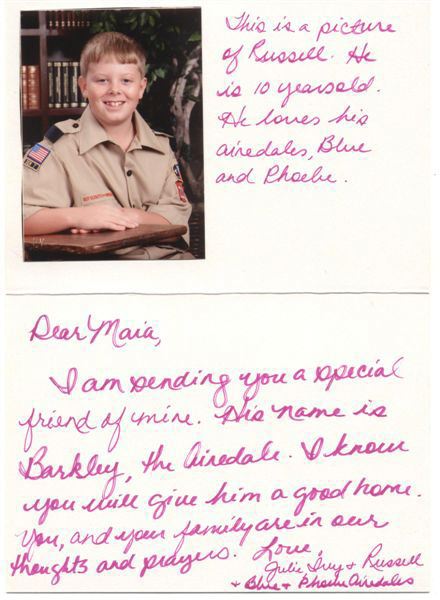 This is a picture
of Russell. He
is 10 years old.
He loves his
airedales, Blue
and Phoebe.
Dear Maia,
I am sending you a special
friend of mine. His name is
Barkley, the Airedale. I know
you will give him a good home.
You, and your family are in our
thoughts and prayers. Love,
Julie, Ivy + Russell
+ Blue + Phoebe Airedales